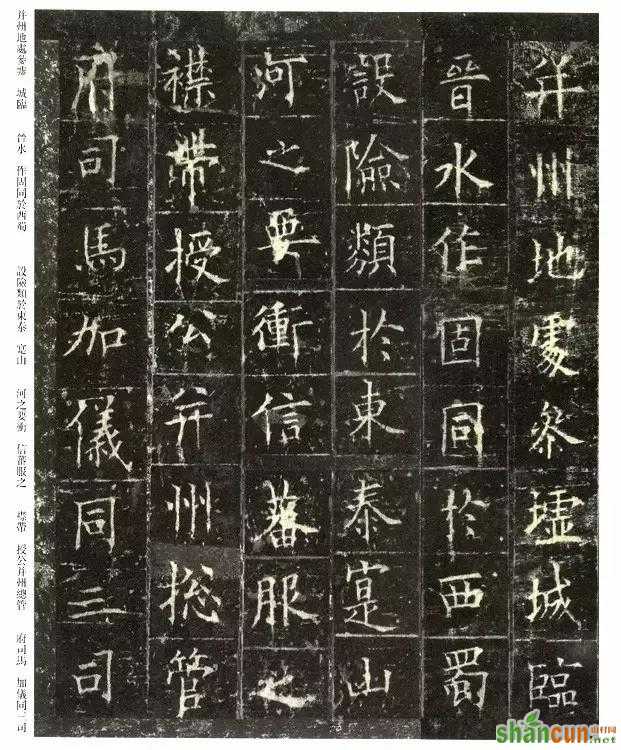 并州地處參墟城臨
晉水作固同於西蜀
設險類於東泰寔山
河之要衝信蕃服之
襟帶授公并州揔管
府司馬加儀同三司
并州地處參墟 城臨 晉水 作固同於西蜀 設險類於東泰 寔山 河之要衝 信蕃服之 襟帶 授公并州總管 府司馬 加儀同三司
shancun
.net